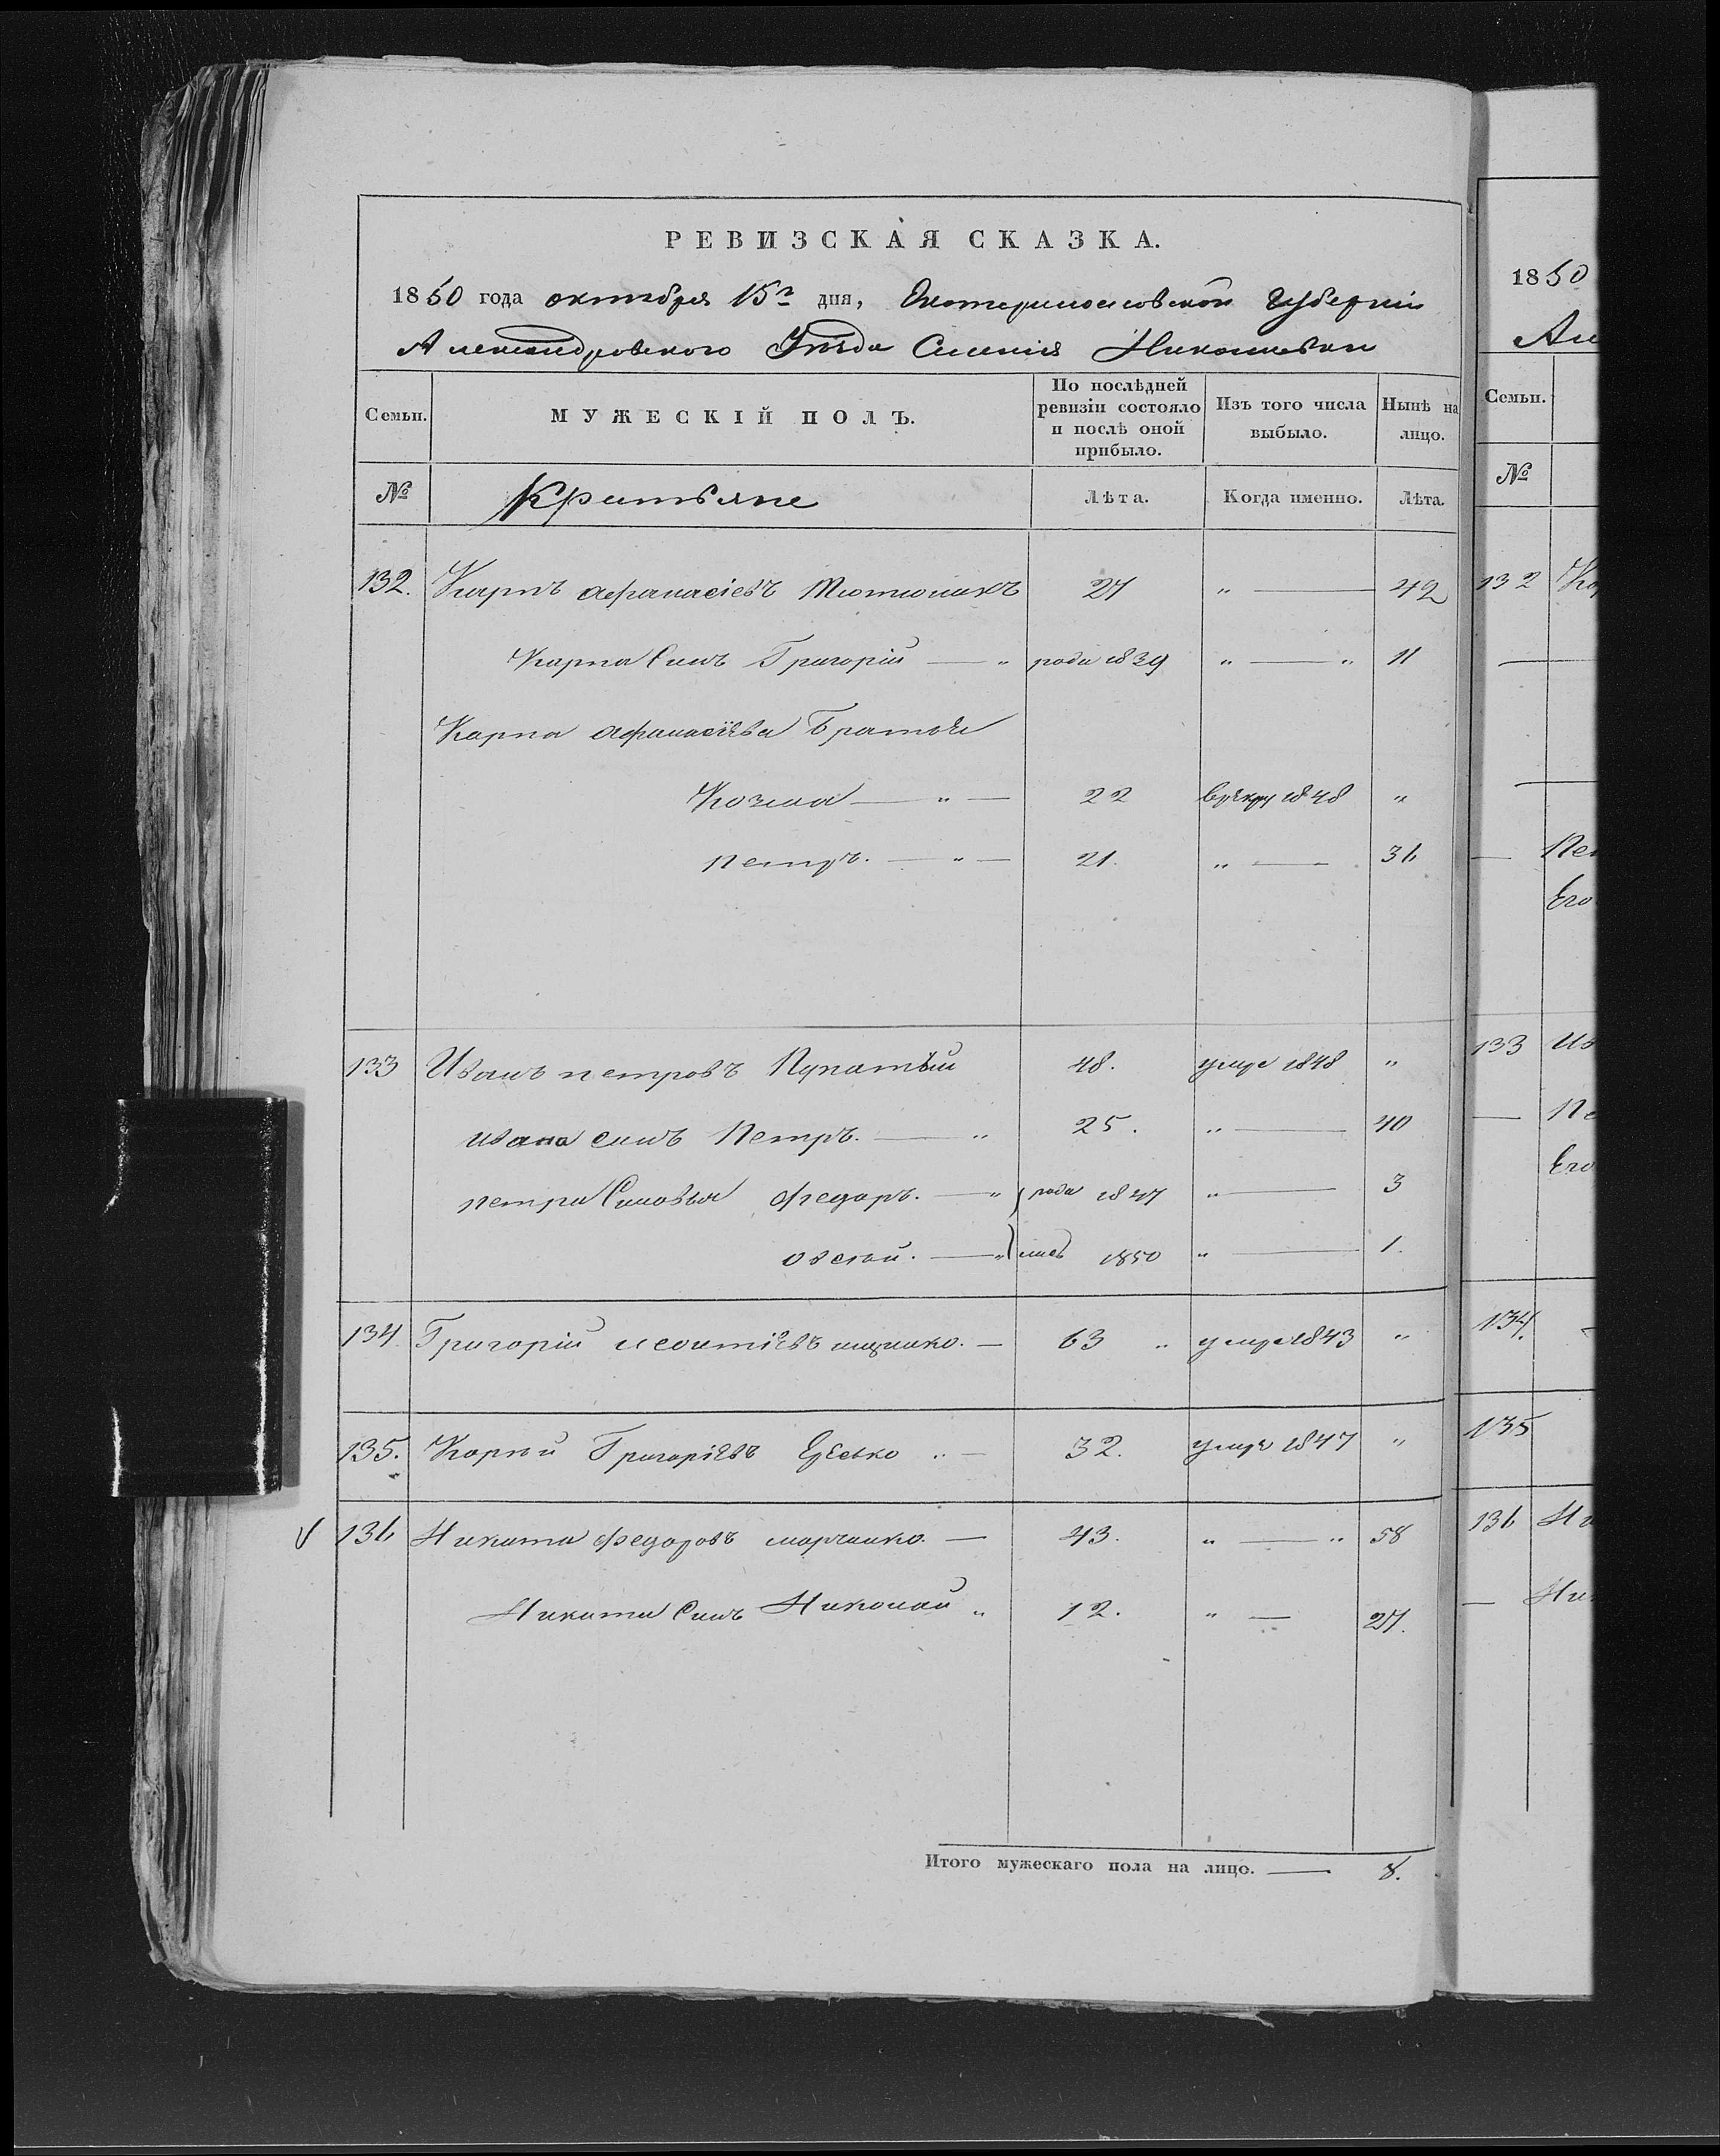 РЕВИЗСКАЯ СКАЗКА.
1850 года октября 15го дня, Екатеринославской Губернии
Александровского Уезда Селения Николаевки
Семьи. МУЖЕСКІЙ ПОЛЪ. По послѣдней ревизіи состояло и послѣ оной прибыло. Изъ того числа выбыло. Нынѣ на лицо.
№ Крестьяне Лѣта. Когда именно. Лѣта.
132. Карпъ Афанасіевъ Тютюникъ 27 " — 42
Карпа Сынъ Григорій — " рода 1839 " — " 11
Карпа Афанасіева Братья
Козма — " — 22 врекру 1848 "
Петръ. — " — 21. " — 36
133 Иванъ Петровъ Пузатый 48. умре 1848 "
Ивана сынъ Петръ. — " 25. " — 40
Петра Сыновья Федоръ. — " роди 1847 " — 3
Овсій. — " лись 1850 " — 1.
134. Григорій Леонтіевъ 63 " умре 1843 "
135. Корній Григоріевъ " — 32. умре 1847 "
136 Никита Федоровъ Марченко. — 43. " — " 58
Никиты Сынъ Николай " 12. " — 27.
Итого мужескаго пола на лицо. — 8.
1850
Ал
Семьи.
№
132 Ка
Пе
Его
133 Ив
Пе
Его
134.
135
136 Ни
Ник